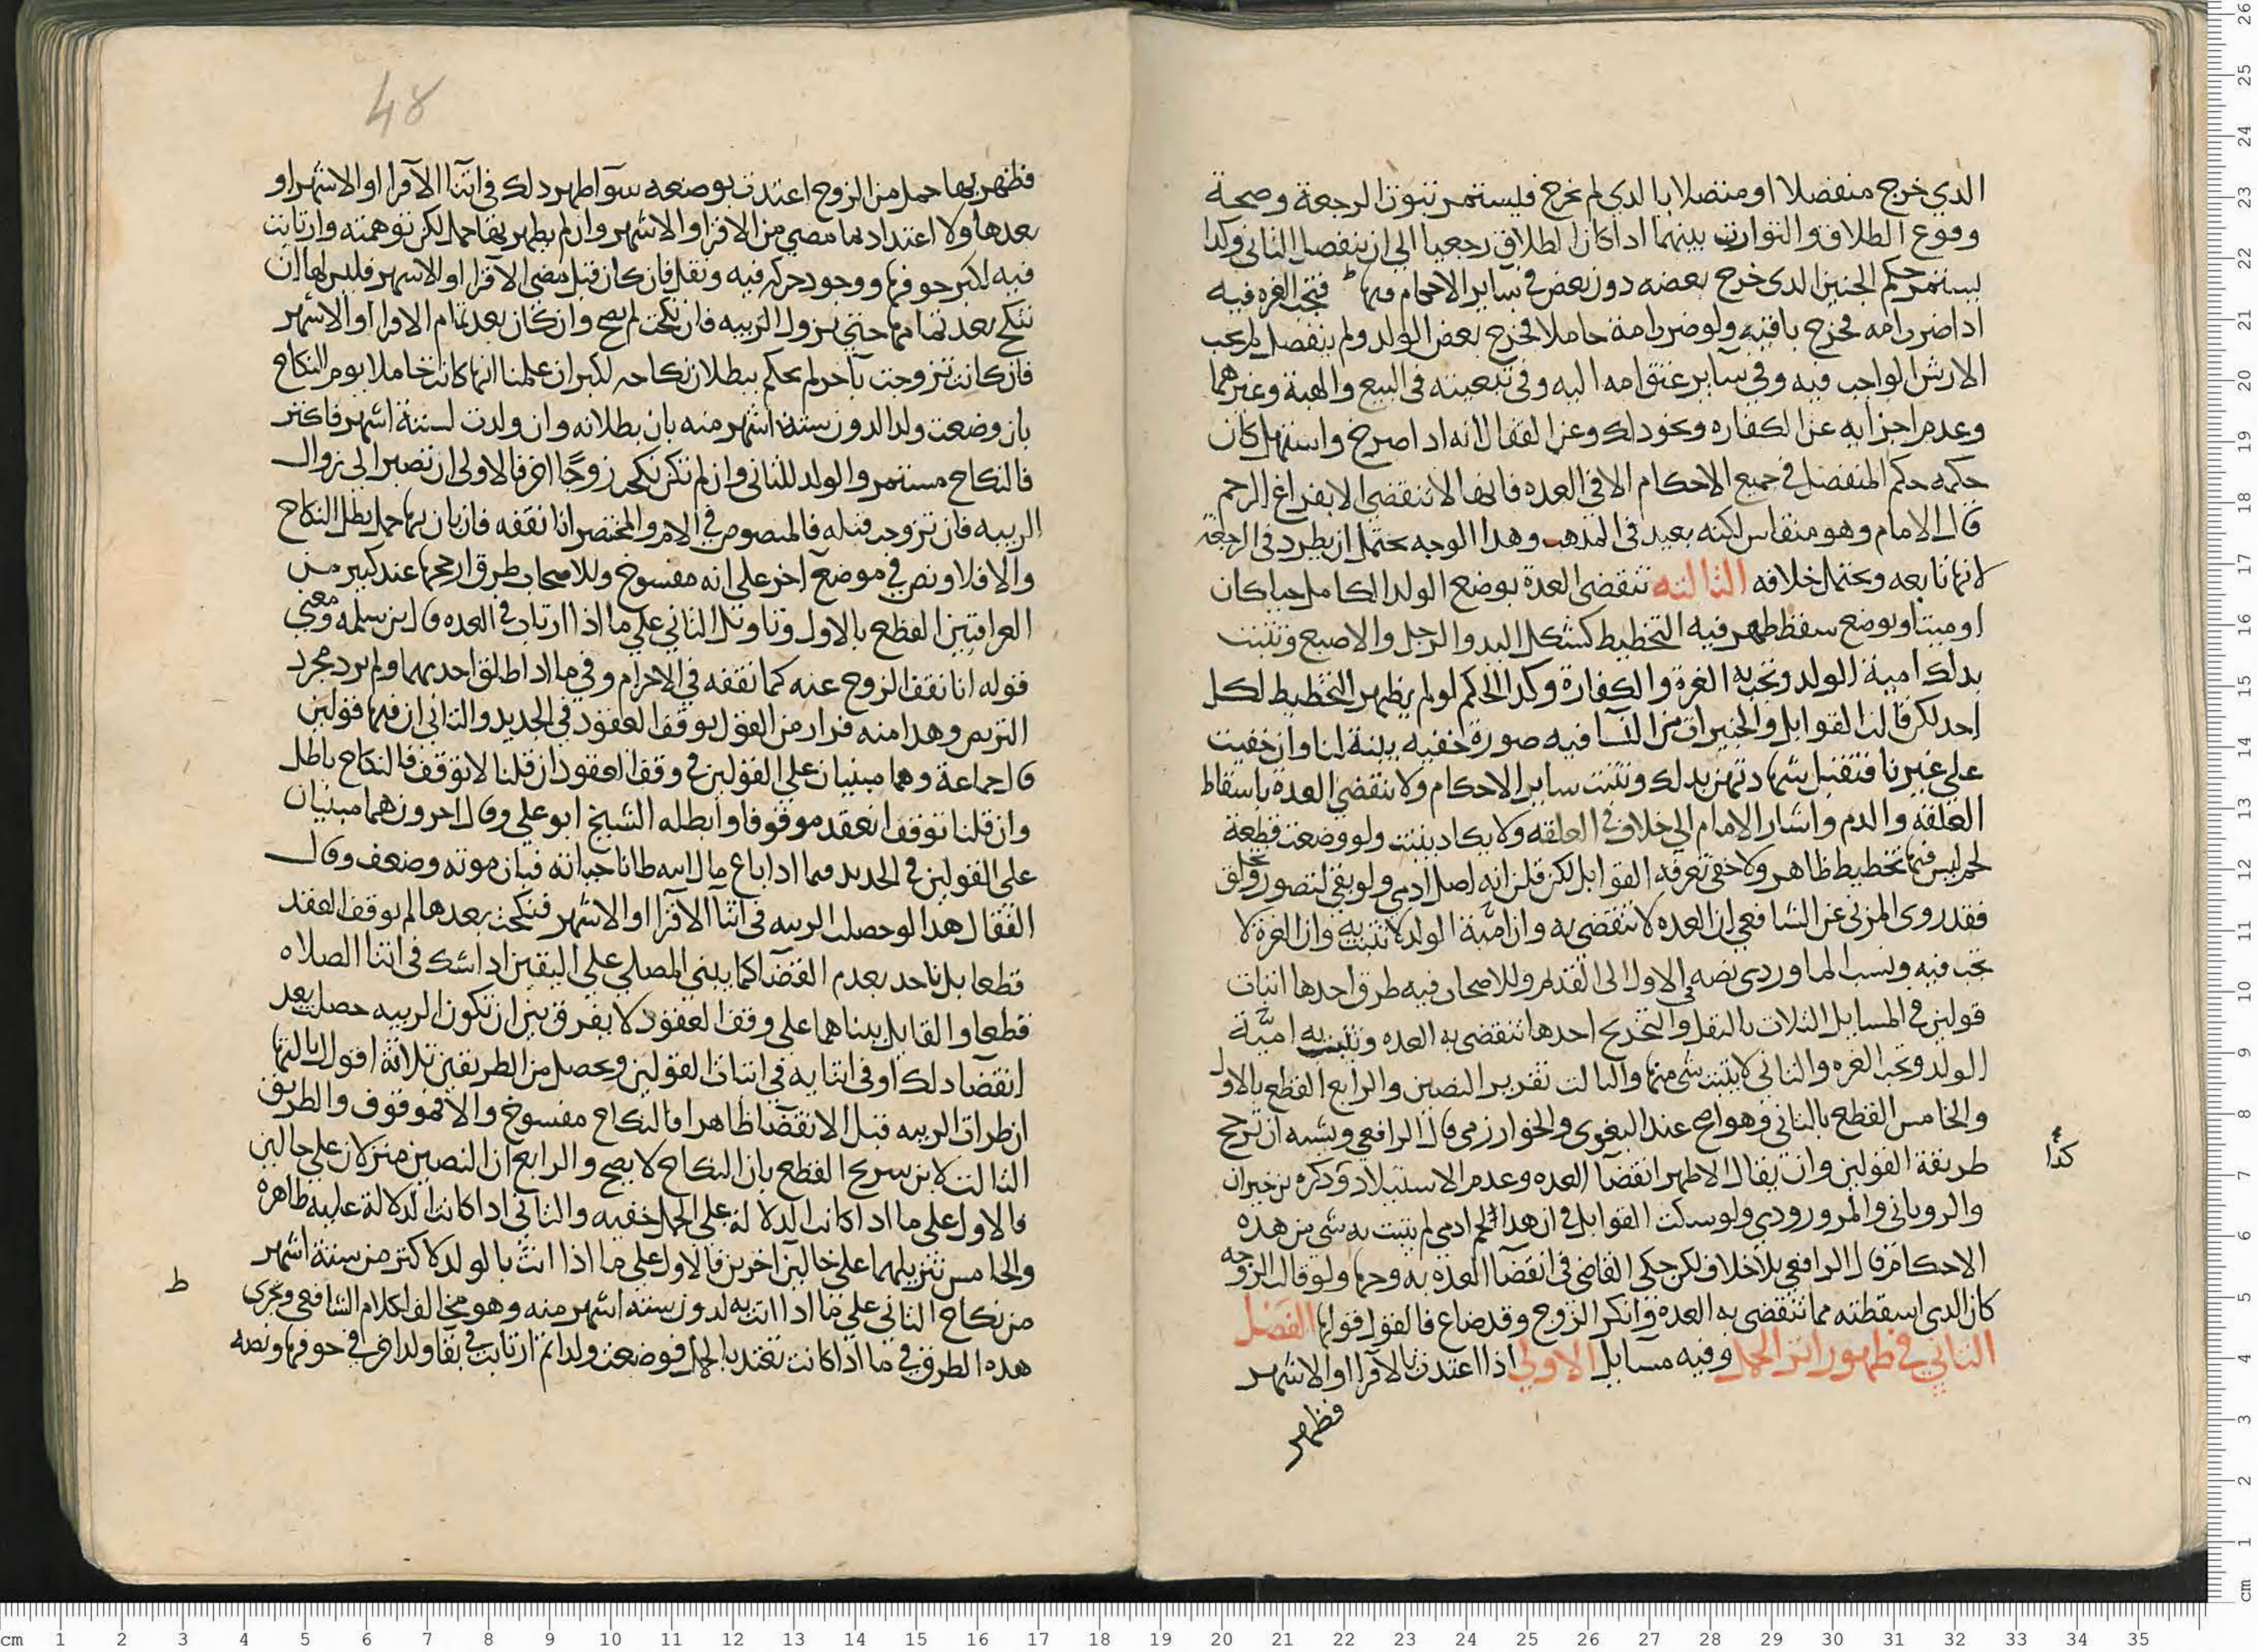 الذي خرج منفصلا او متصلا بالذي لم يخرج فيستمر ثبوت الرجعة وصحة
وقوع الطلاق والتوارث بينهما اذا كان الطلاق رجعيا الي ان ينفصل الثاني وكذا
يستمر حكم الجنين الذي خرج بعضه دون بعض في ساير الاحكام فتجب الغره فيه
اذا ضرب امه فخرج باقيه ولو ضرب امة حاملا فخرج بعض الولد ولم ينفصل لم يجب
الارش الواجب فيه وفي سراية عتق امه اليه وفي تبعيته في البيع والهبة وغيرهما
وعدم اجزايه عن الكفاره ونحو ذلك وعن القفال انه اذا صرخ واستهل كان
حكمه حكم المنفصل في جميع الاحكام الا في العده فانها لا تنقضي الا بفراغ الرحم
قال الامام وهو منقاس لكنه بعيد في المذهب وهذا الوجه يحتمل ان يطرد في الرجعة
لانها تابعه ويحتمل خلافه الثالثه تنقضي العدة بوضع الولد الكامل حيا كان
او ميتا وبوضع سقط ظهر فيه التخطيط كشكل اليد والرجل والاصبع وتثبت
بذلك امية الولد وتجب به الغرة والكفارة وكذا الحكم لو لم يظهر التخطيط لكل
احد لكن قالت القوابل والخبيرات من النسا فيه صورة خفيه بينة لنا وان خفيت
علي غيرنا فتقبل شهادتهن بذلك وتثبت ساير الاحكام ولا تنقضي العدة باسقاط
العلقة والدم واشار الامام الي خلاف في العلقه ولا يكاد يثبت ولو وضعت قطعة
لحم ليس فيها تخطيط ظاهر ولا خفي تعرفه القوابل لكن قلن انه اصل ادمي ولو بقي لتصور وتخلق
فقد روي المزني عن الشافعي ان العده لا تنقضي به وان امية الولد لا تثبت به وان الغرة لا
تجب فيه ونسب الماوردي نصه في الاول الي القديم وللاصحاب فيه طرق احدها اثبات
قولين في المسايل الثلاث بالنقل والتخريج احدها تنقضي به العده وتثبت به امية
الولد وتجب الغره والثاني لا يثبت شي منها والثالث تقرير النصين والرابع القطع بالاول
والخامس القطع بالثاني وهو اصح عند البغوي والخوارزمي قال الرافعي ويشبه ان ترجح
كذا
طريقة القولين وان يقال الاظهر انقضا العده وعدم الاستيلاد وذكره بن خيران
والروياني والمرورودي ولو سكت القوابل في ان هذا لحم ادمي لم يثبت به شي من هذه
الاحكام قال الرافعي بلا خلاف لكن حكي القاضي في انقضا العده به وجها ولو قالت الزوجه
كان الذي اسقطته مما تنقضي به العدة وانكر الزوج وقد ضاع فالقول قولها الفصل
الثاني في ظهور اثر الحمل وفيه مسايل الاولي اذا اعتدت بالاقرا او الاشهر
فظهر
48
فظهر بها حمل من الزوج اعتدت بوضعه سوا ظهر ذلك في اثنا الاقرا او الاشهر او
بعدها ولا اعتداد بما مضي من الاقرا والاشهر وان لم يظهر بها حمل لكن توهمته وارتابت
فيه لكبر جوفها ووجود حركه فيه وثقل فان كان قبل مضي الاقرا او الاشهر فليس لها ان
تنكح بعد تمامها حتي تزول الريبه فان نكحت لم يصح وان كان بعد تمام الاقرا او الاشهر
فان كانت تزوجت باخر لم يحكم ببطلان نكاحه لكن ان علمنا انها كانت حاملا يوم النكاح
بان وضعت ولدا لدون ستة اشهر منه بان بطلانه وان ولدت لستة اشهر فاكثر
فالنكاح مستمر والولد للثاني وان لم تكن نكحت زوجًا اخر فالاولي ان تصبر الي زوال
الريبه فان تزوجت قبله فالمنصوص في الام والمختصر انا نقفه فان بان بها حمل بطل النكاح
والا فلا ونص في موضع اخر علي انه مفسوخ وللاصحاب طرق ارجحها عند كثير من
العراقيين القطع بالاول وتاويل الثاني علي ما اذا ارتاب في العده قال بن سلمه ومعني
قوله انا نقف الزوج عنه كما نقفه في الاحرام وفي ما اذا طلق احديهما ولم يرد مجرد
التربص وهذا منه فرار من القول بوقف العقود في الجديد والثاني ان فيها قولين
قال جماعة وهما مبنيان علي القولين في وقف العقود ان قلنا لا توقف فالنكاح باطل
وان قلنا توقف انعقد موقوفا وابطله الشيخ ابو علي وقال اخرون هما مبنيان
علي القولين في الجديد فيما اذا باع مال ابيه ظانا حياته فبان موته وضعف وقال
القفال هذا لو حصلت الريبه في اثنا الاقرا او الاشهر فنكحت بعدها لم يوقف العقد
قطعا بل ناخذ بعدم القضا كما يبني المصلي علي اليقين اذا شك في اثنا الصلاه
قطعا والقايل ببناهما علي وقف العقود لا يفرق بين ان تكون الريبه حصلت بعد
انقضا ذلك او في اثنايه في اثبات القولين ويحصل من الطريقين ثلاثة اقوال ثالثها
ان طرات الريبه قبل الانقضا ظاهرا فالنكاح مفسوخ والا فموقوف والطريق
الثالث لابن سريج القطع بان النكاح لا يصح والرابع ان النصين منزلان علي حالين
فالاول علي ما اذا كانت الدلالة علي الحمل خفيه والثاني اذا كانت الدلالة عليه ظاهره
والخامس تنزيلهما علي حالين اخرين فالاول علي ما اذا اتت بالولد لاكثر من ستة اشهر
ط
من نكاح الثاني علي ما اذا اتت به لدون سته اشهر منه وهو مخالف لكلام الشافعي وتجري
هذه الطرق في ما اذا كانت تعتد بالحمل فوضعت ولدا ثم ارتابت في بقا ولد اخر في جوفها ونصه